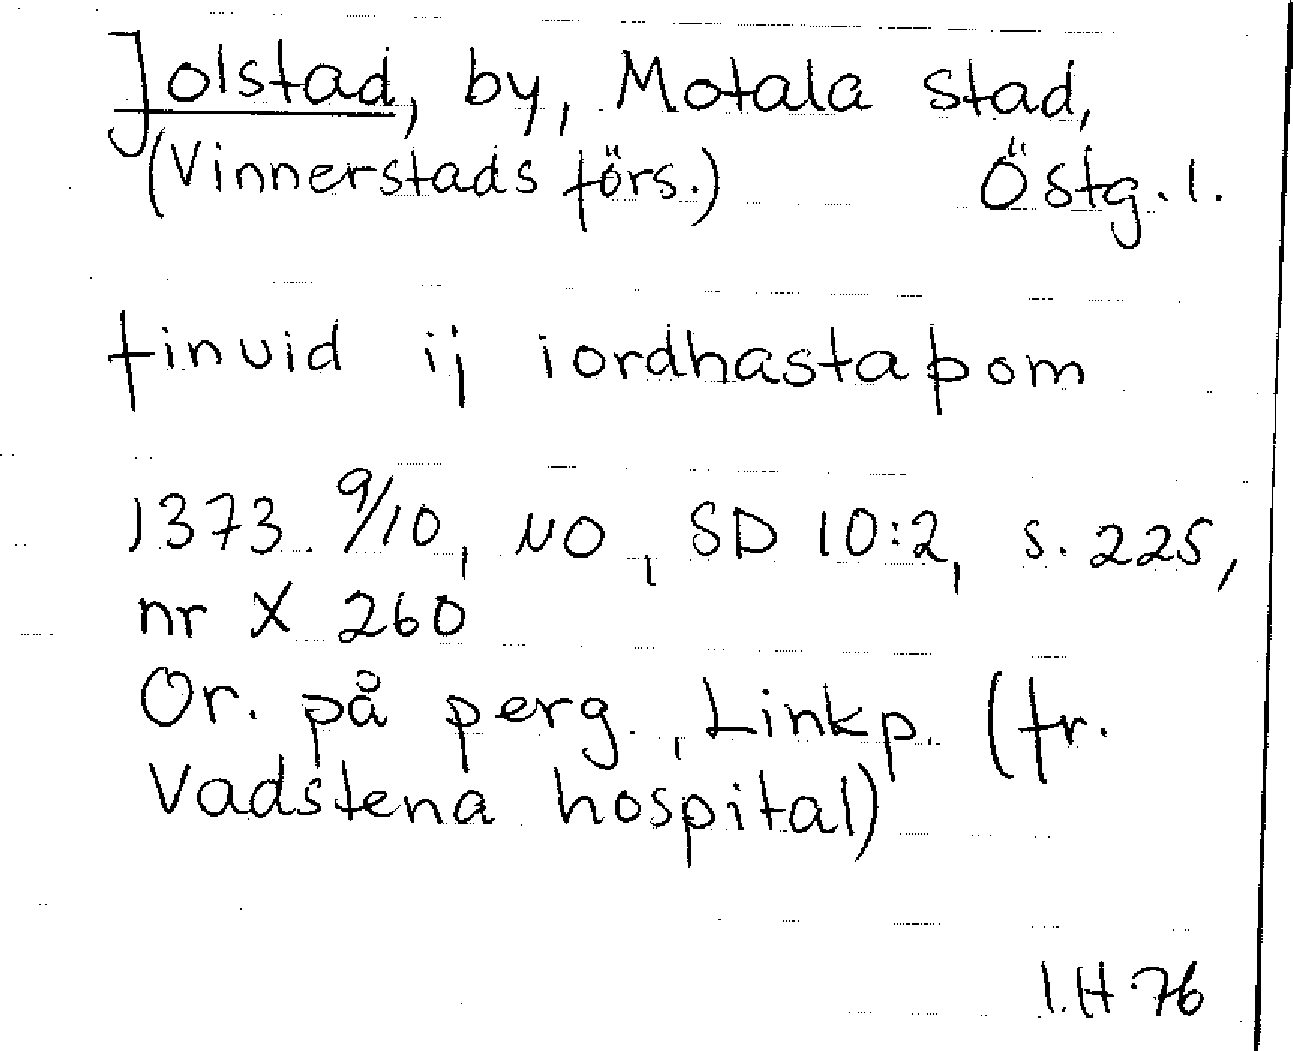 Jolstad, by, Motala stad,
(Vinnerstads förs.) Östg. l.
finuid ij iordhastaþom
1373 9/10, NO, SD 10:2, s. 225,
nr X 260
Or. på perg., Linkp. (fr.
Vadstena hospital)
I.H 76